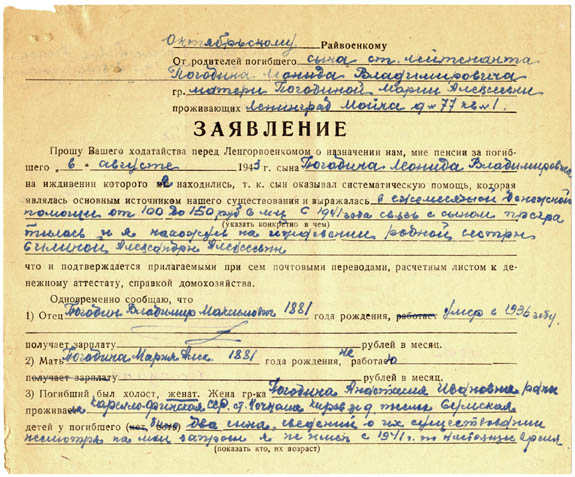 Октябрьскому Райвоенкому
От родителей погибшего сына ст. лейтенанта
Погодина Леонида Владимировича
гр. матери Погодиной Марии Алексеевны
проживающих Ленинград Мойка д № 77 кв № 1.
ЗАЯВЛЕНИЕ
Прошу Вашего ходатайства перед Ленгорвоенкомом о назначении нам, мне пенсии за погиб-
шего „ в „ августе 1943 г. сына Погодина Леонида Владимировича
на иждивении которого я находились, т. к. сын оказывал систематическую помощь, кодорая
являлась основным источником нашего существования и выражалась в ежемесячной денежной
помощи от 100 до 150 руб в м-ц С 1941 года связь с сыном прекра
(указать конкретно в чем)
тилась и я нахожусь на иждивении родной сестры
Александры Алексеевны
что и подтверждается прилагаемыми при сем почтовыми переводами, расчетным листом к де-
нежному аттестату, справкой домохозяйства.
Одновременно сообщаю, что
1) Отец Погодин Владимир Максимович 1881 года рождения, работает умер с 1936 году.
получает зарплату рублей в месяц.
2) Мать Погодина Мария Алек. 1881 года рождения, не работаю
получает зарплату рублей в месяц.
3) Погибший был холост, женат. Жена гр-ка Погодина Анастасия Ивановна
проживает Карело-Финская ССР, ст.
детей у погибшего (нет, было) два сына, сведений о их существовании
несмотря на мои запросы я не имею с 1941 г. по настоящее время
(показать кто, их возраст)